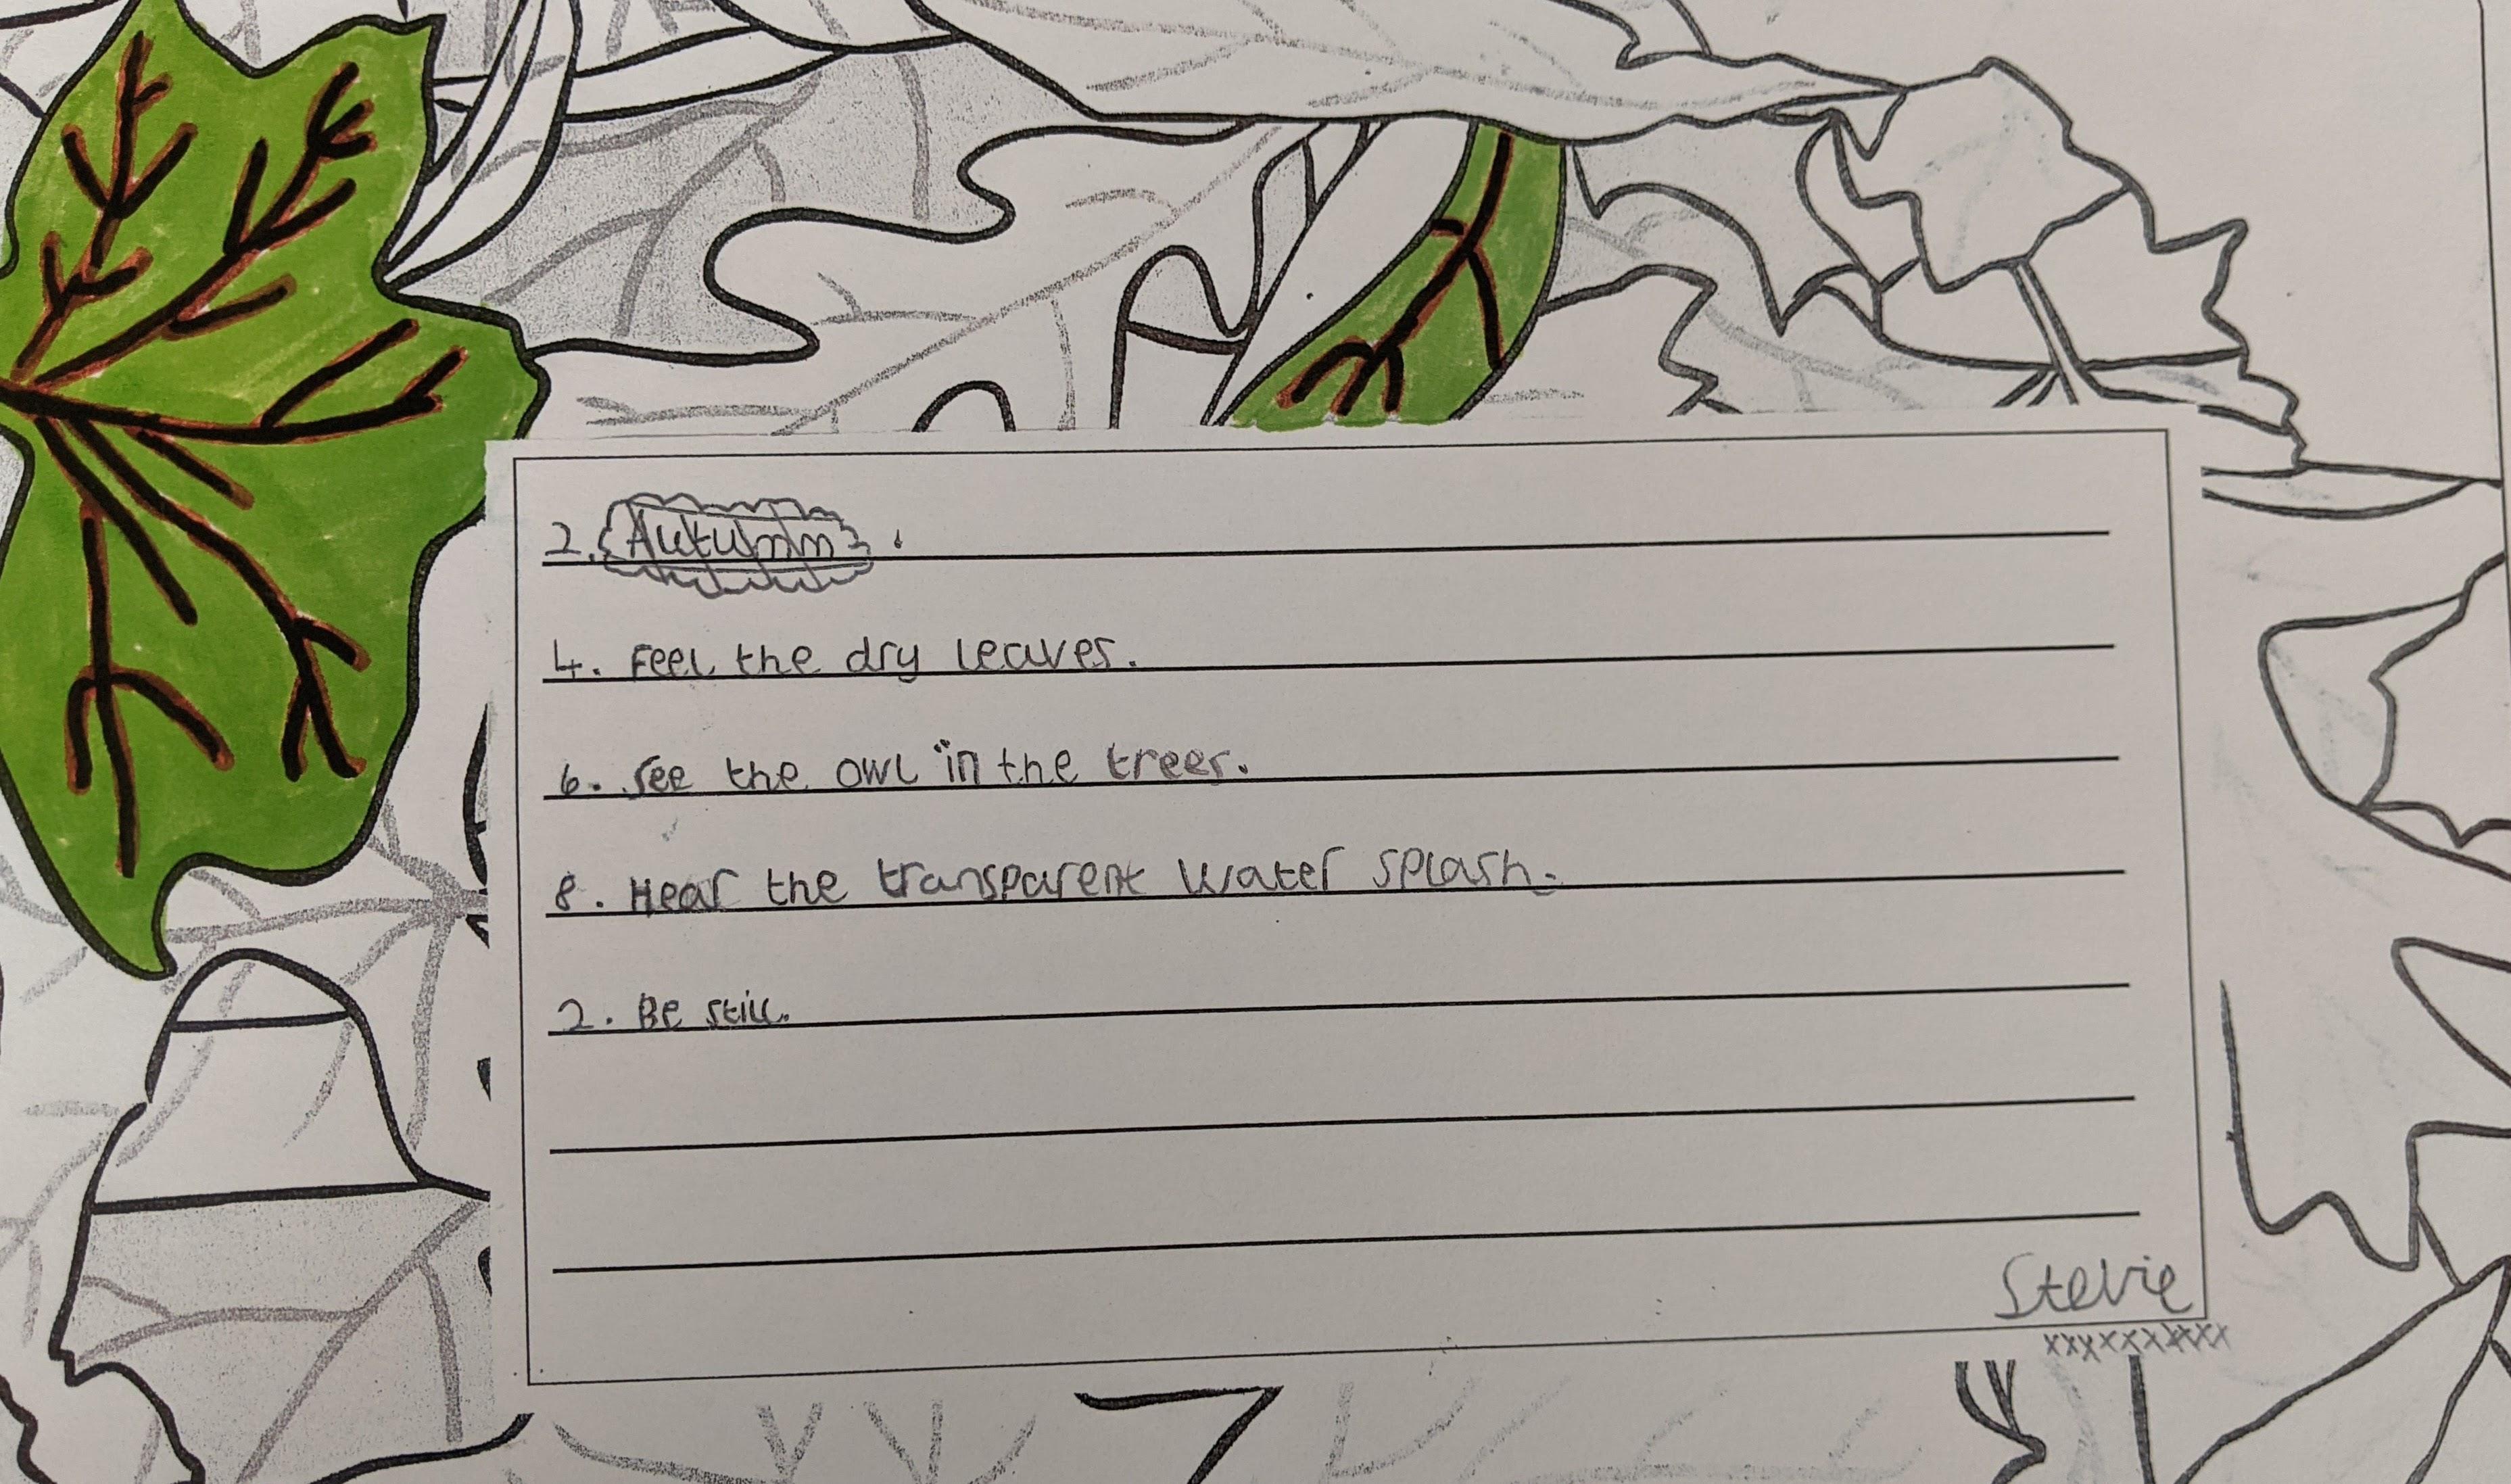 2. Autumn.
4. Feel the dry leaves.
6. See the owl in the trees.
8. Hear the transparent water splash.
2. Be still.
Stevie
xxxxxxxxxx